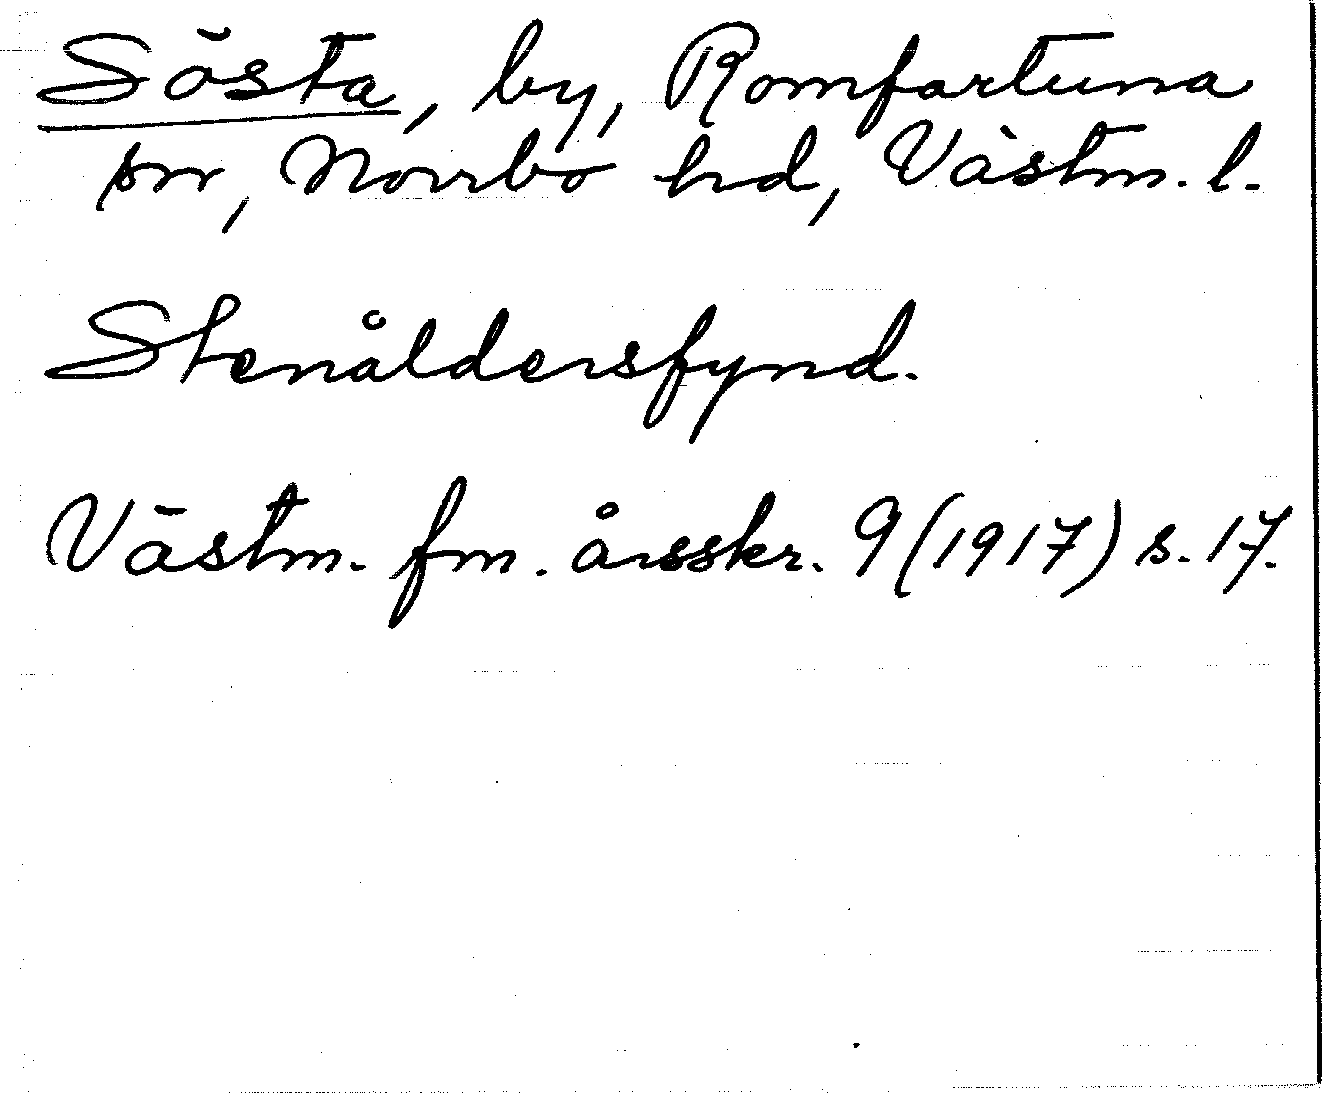 Sösta, by, Romfartuna
sn, Norrbo hd, Västm. l.
Stenåldersfynd.
Västm. fm. årsskr. 9 (1917) s. 17.